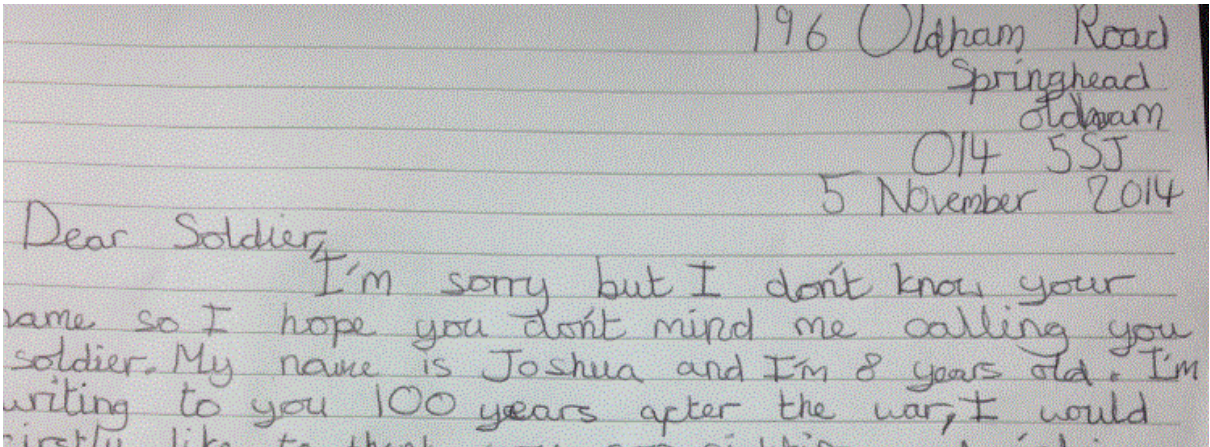 196 Oldham Road
Springhead
Oldham
Ol4 5SJ
5 November 2014
Dear Soldier,
I'm sorry but I don't know your
name so I hope you don't mind me calling you
soldier. My name is Joshua and I'm 8 years old. I'm
writing to you 100 years after the war, I would
like to